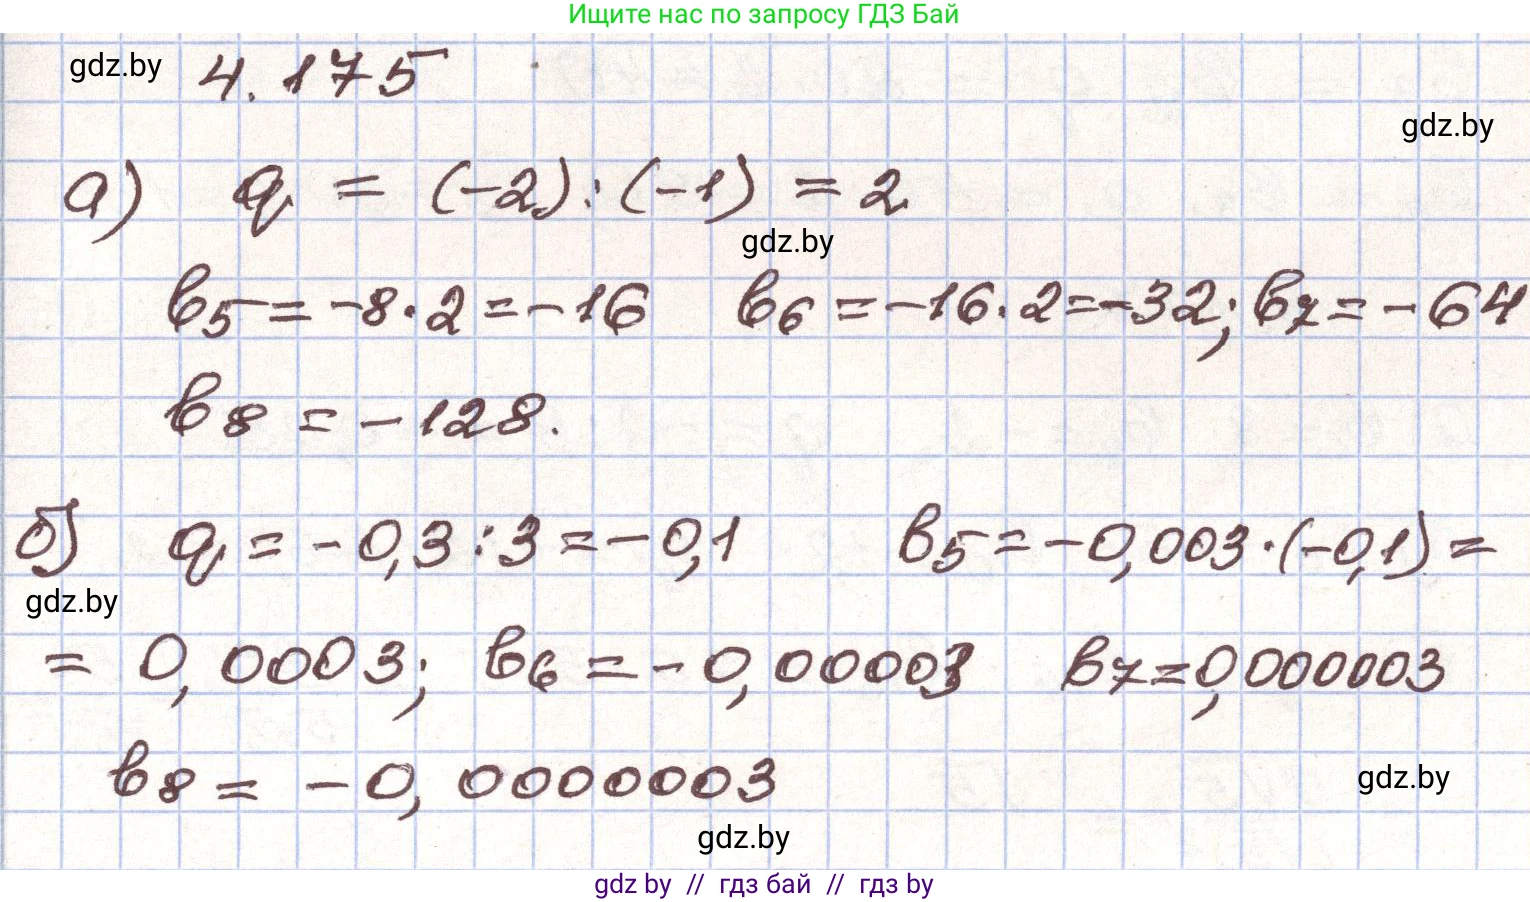 Ищите нас по запросу ГДЗ Бай
gdz.by 4.175
gdz.by
а) q = (-2):(-1) = 2
gdz.by
b5 = -8·2 = -16 b6 = -16·2 = -32; b7 = -64
b8 = -128.
б) q = -0,3:3 = -0,1 b5 = -0,003·(-0,1) =
gdz.by
= 0,0003; b6 = -0,00003 b7 = 0,000003
b8 = -0,0000003
gdz.by
gdz.by
gdz by // гдз бай // гдз by